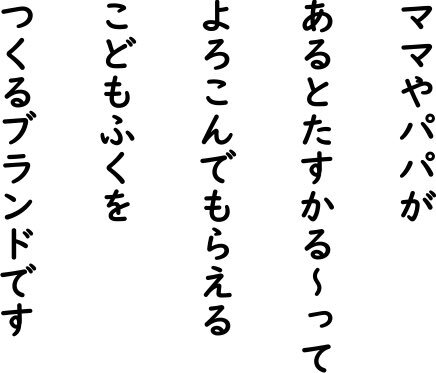 ママやパパが
あるとたすかる～って
よろこんでもらえる
こどもふくを
つくるブランドです